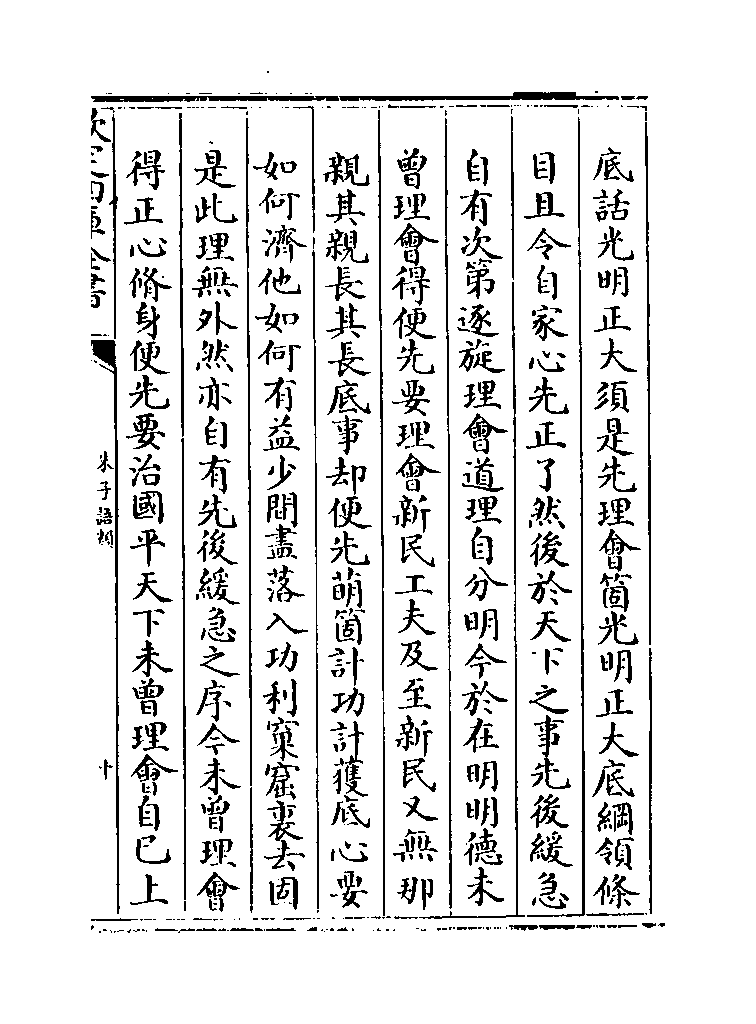 底話光明正大須是先理會箇光明正大底綱領條
目且令自家心先正了然後於天下之事先後緩急
自有次第逐旋理會道理自分明今於在明明德未
曾理會得便先要理會新民工夫及至新民又無那
親其親長其長底事却便先萌箇計功計獲底心要
如何濟他如何有益少間盡落入功利窠窟裏去固
是此理無外然亦自有先後緩急之序今未曾理會
得正心脩身便先要治國平天下未曾理會自已上
欽定四庫全書
朱子語類
十